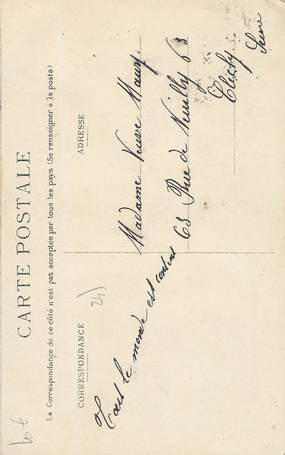 CARTE POSTALE
La Correspondance de ce côté n'est pas acceptée par tous les pays (Se renseigner à la poste)
CORRESPONDANCE
ADRESSE
Tout le monde est
Madame Veuve Maury
63 Rue de Neuilly 63
Clichy
Seine
24)